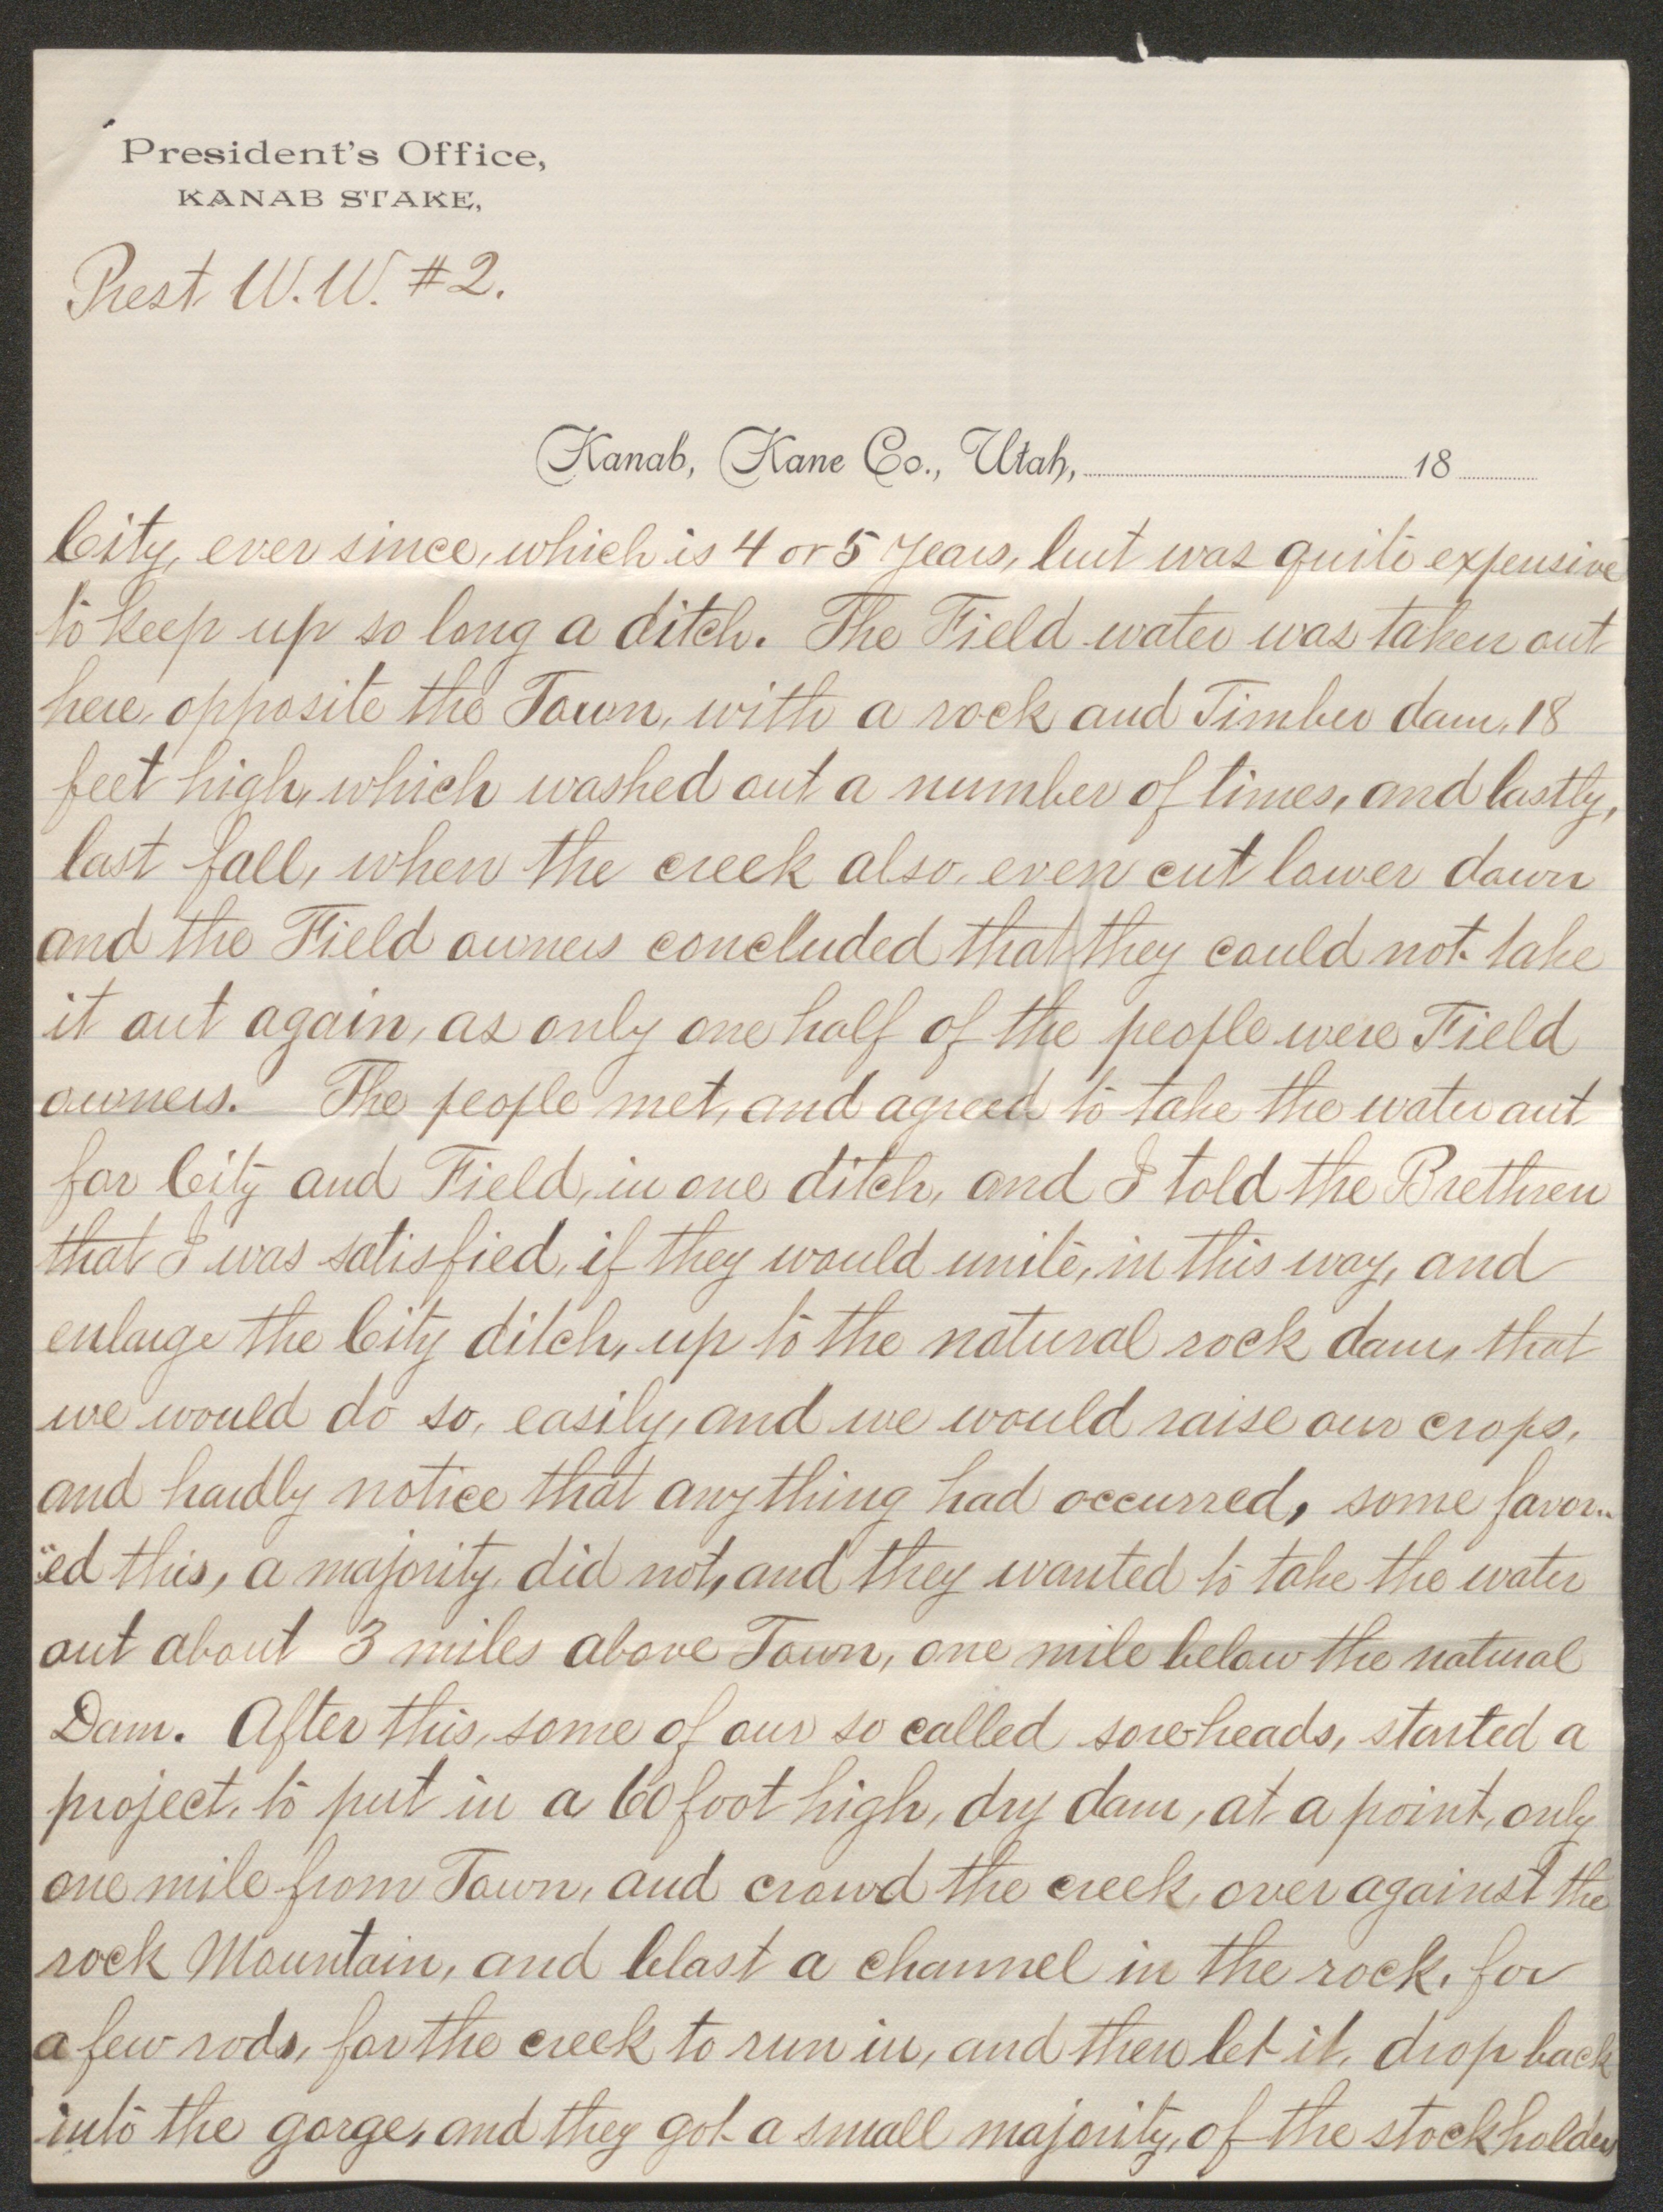 President's Office,
KANAB STAKE,
Prest. W. W. #2.
Kanab, Kane Co., Utah, 18
City, ever since, which is 4 or 5 years, but was quite expensive
to keep up so long a ditch. The Field water was taken out
here, opposite the Town, with a rock and Timber dam, 18
feet high, which washed out a number of times, and lastly,
last fall, when the creek also, even cut lower down
and the Field owners concluded that they could not take
it out again, as only one half of the people were Field
owners. The people met, and agreed to take the water out
for City and Field, in one ditch, and I told the Brethren
that I was satisfied, if they would unite, in this way, and
enlarge the City ditch, up to the natural rock dam, that
we would do so, easily, and we would raise our crops,
and hardly notice that anything had occurred, some favor-
"ed this, a majority, did not, and they wanted to take the water
out about 3 miles above Town, one mile below the natural
Dam. After this, some of our so called sore-heads, started a
project, to put in a 60 foot high, dry dam, at a point, only
one mile from Town, and crowd the creek, over against the
rock Mountain, and blast a channel in the rock, for
a few rods, for the creek to run in, and then let it, drop back
into the gorge, and they got a small majority, of the stockholders